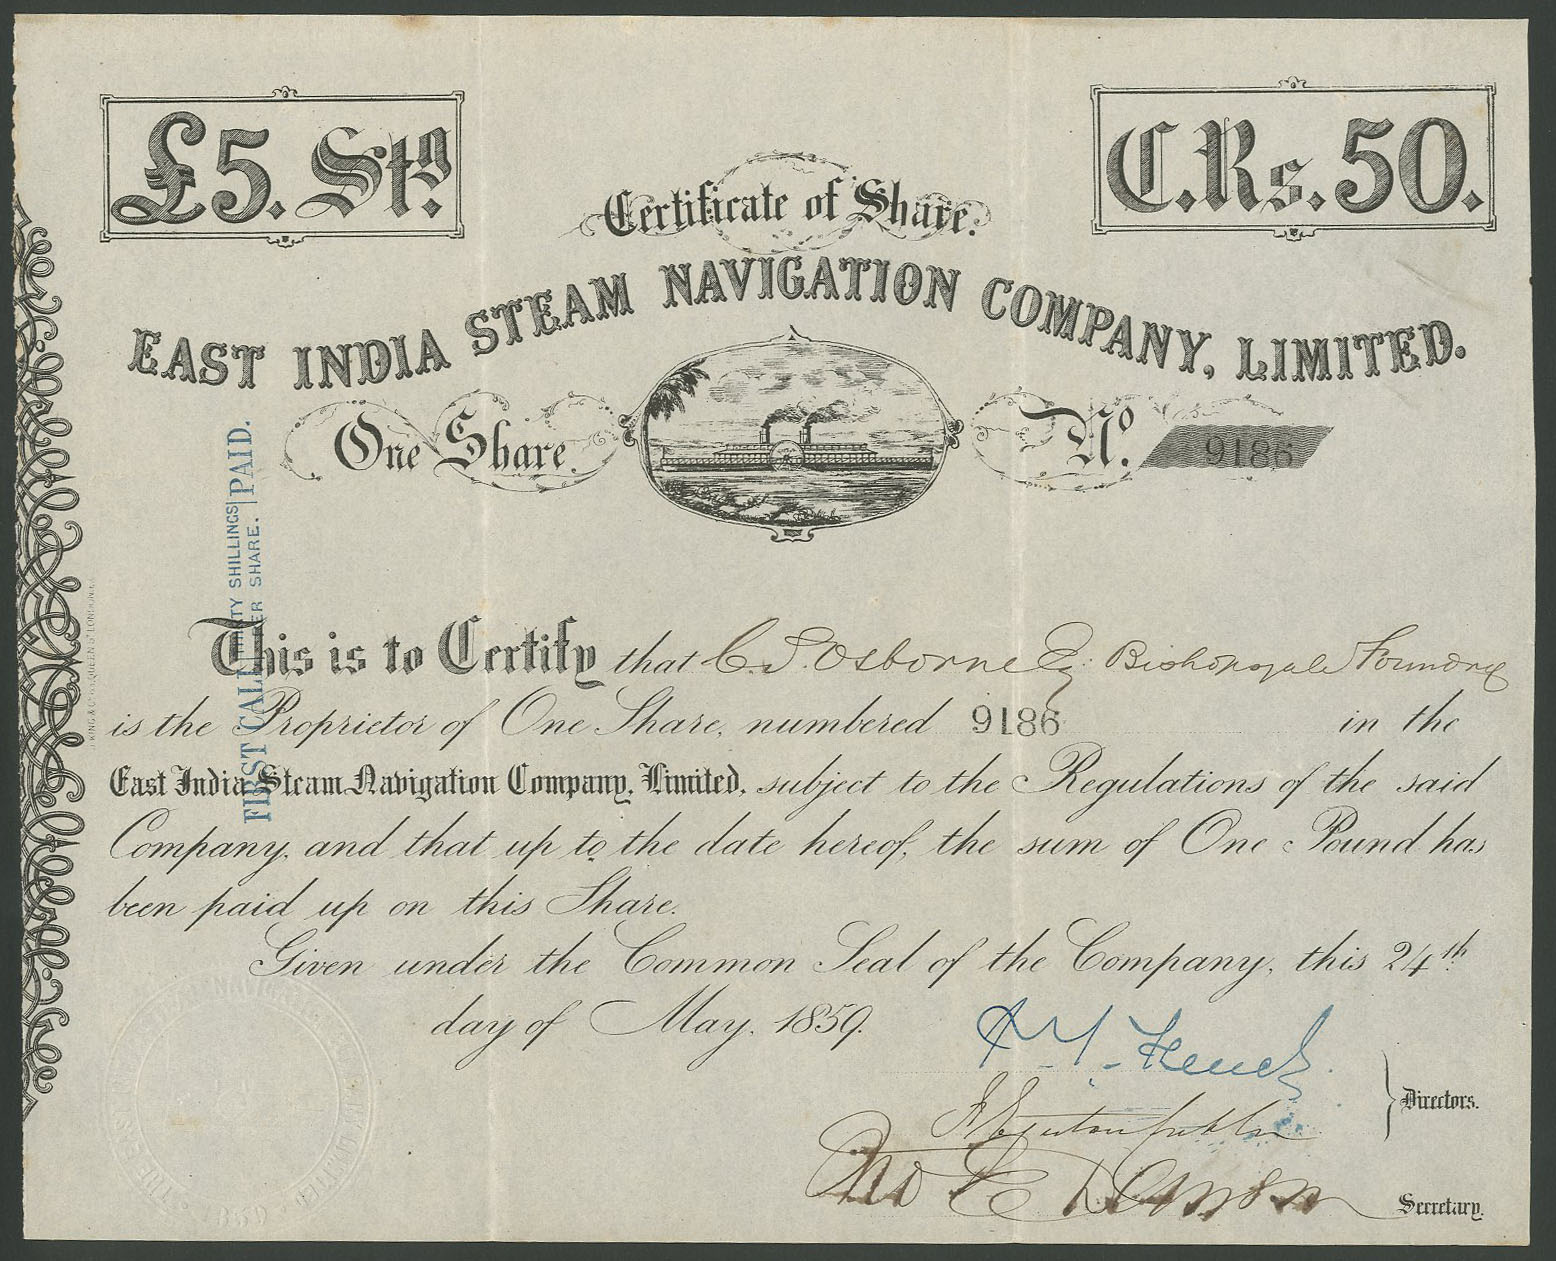 £5. Stg.
C.Rs. 50.
Certificate of Share.
EAST INDIA STEAM NAVIGATION COMPANY, LIMITED.
One Share.
No. 9186
FIRST CALL THIRTY SHILLINGS PER SHARE. PAID.
This is to Certify that C. S. Osborne Esq:
is the Proprietor of One Share, numbered 9186 in the
East India Steam Navigation Company, Limited, subject to the Regulations of the said
Company, and that up to the date hereof, the sum of One Pound has
been paid up on this Share.
Given under the Common Seal of the Company, this 24th
day of May. 1859.
Directors.
Secretary.
THE EAST INDIA STEAM NAVIGATION COMPANY LIMITED
1859